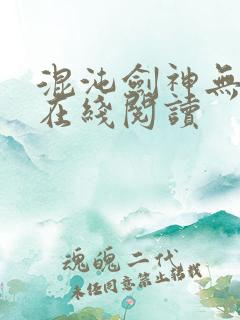 混沌劍神無
在綫閱讀
魂魄二代
未经同意禁止轉載